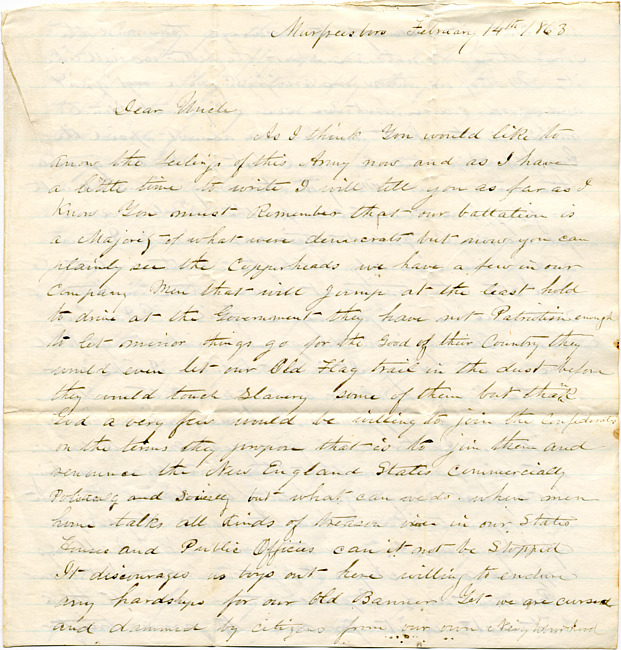 Murfreesboro February 14th 1863
Dear Uncle
As I think You would like to
know the feelings of this Army now and as I have
a little time to write I will tell you as far as I
Know You must Remember that our battalion is
a Majority of what were democrats but now you can
plainly see the Copperheads we have a few in our
Company Men that will jump at the least hold
to drive at the Government they have not Patriotism enough
to let minor things go for the Good of their Country they
would even let our Old Flag trail in the dust before
they would touch Slavery some of them but thank
God a very few would be willing to join the Confederates
on the terms they propose that is to join them and
renounce the New England States Commercially
Politicaly and Socially but what can we do when men
home talks all kinds of treason in our States
Houses and Public Offices can it not be Stopped
It discourages us boys out here willing to endure
any hardships for our Old Banner Yet we are cursed
and dammed by citizens from our own Neighborhood